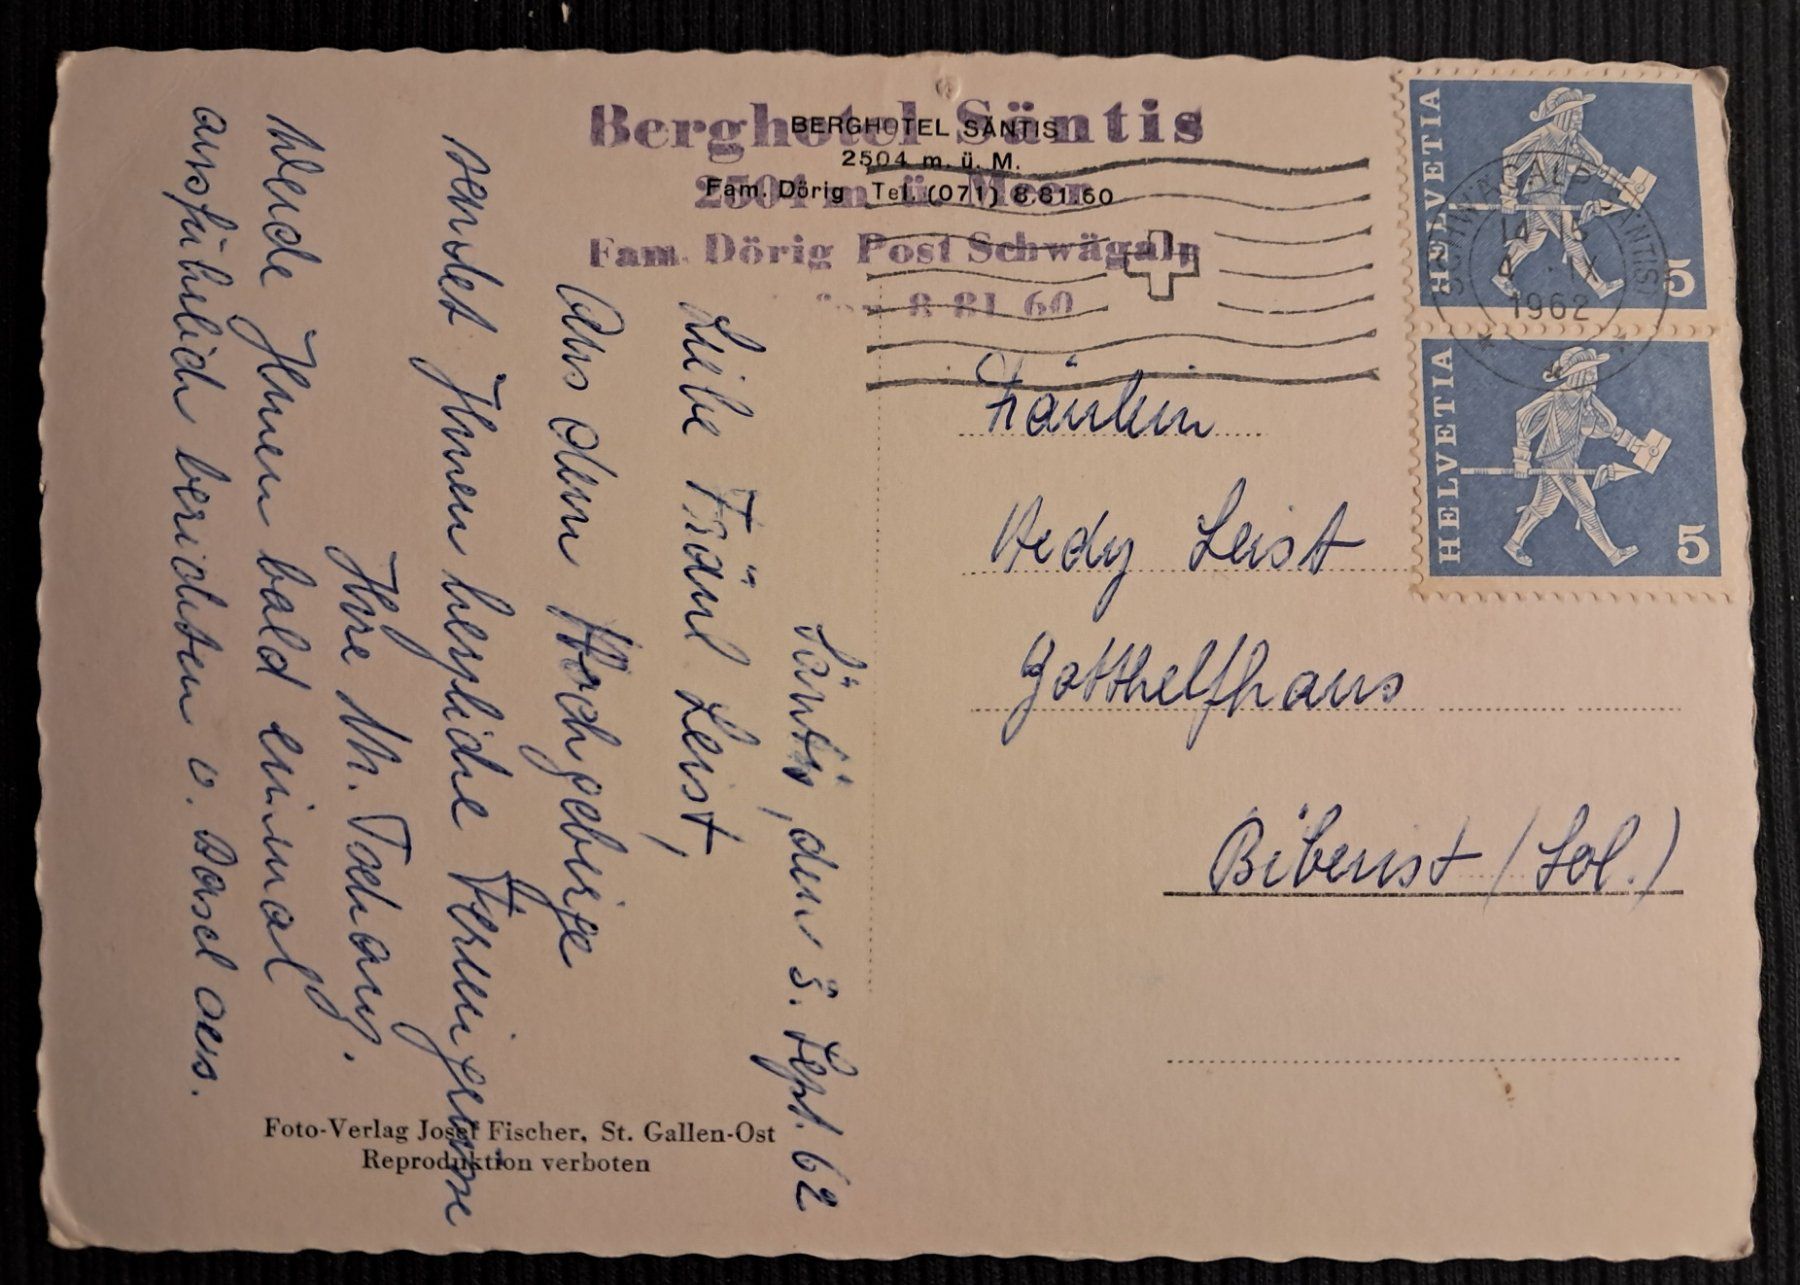 Berghotel Säntis
2504 m ü. Meer
Fam. Dörig Post Schwägalp
8 81 60
BERGHOTEL SÄNTIS
2504 m. ü. M.
Fam. Dörig Tel. (071) 8 81 60
HELVETIA
5
HELVETIA
5
SCHWÄGALP (SÄNTIS)
IX
1962
Säntis, den 5. Sept. 62
Liebe Fräul Leist,
Aus dem Hochgebirge
sendet Ihnen herzliche Feriengrüsse
Ihre M.
Werde Ihnen bald einmal
ausführlich berichten v. Basel aus.
Fräulein
Hedy Leist
Gotthelfhaus
Biberist (Sol.)
Foto-Verlag Josef Fischer, St. Gallen-Ost
Reproduktion verboten